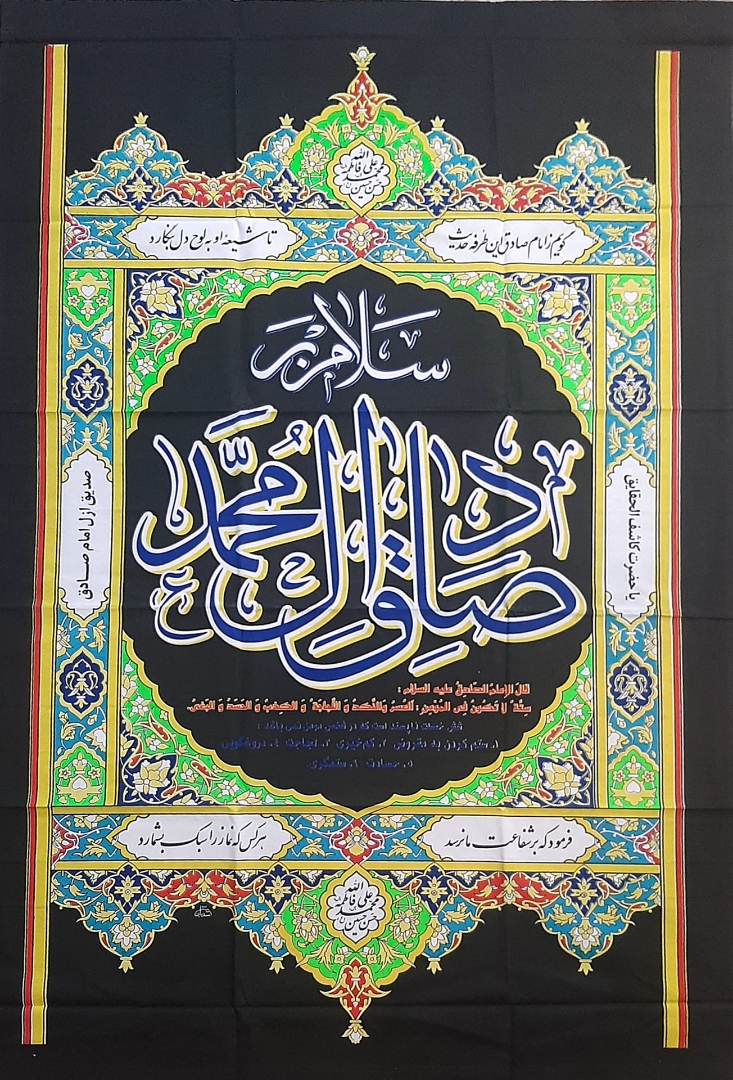 الله
محمد علی فاطمه
حسن حسین
گویم ز امام صادق این طرفه حدیث
تا شیعه او به لوح دل بنگارد
سلام بر
صادق آل محمد ع
یا حضرت کاشف الحقایق
صدیق ازل امام صادق
قال الإمام الصادق علیه السلام :
ستة لا تکون في المؤمن : العسر والنکد و اللجاجة و الکذب و الحسد و البغي.
شش خصلت ناپسند است که در شخص مومن نمی باشد :
۱. ستم کردن به ۲. کم خیری ۳. لجاجت ۴. دروغگویی
۵. حسادت ۶. ستمگری
فرمود که بر شفاعت ما نرسد
هر کس که نماز را سبک بشمارد
الله
محمد علی فاطمه
حسن حسین